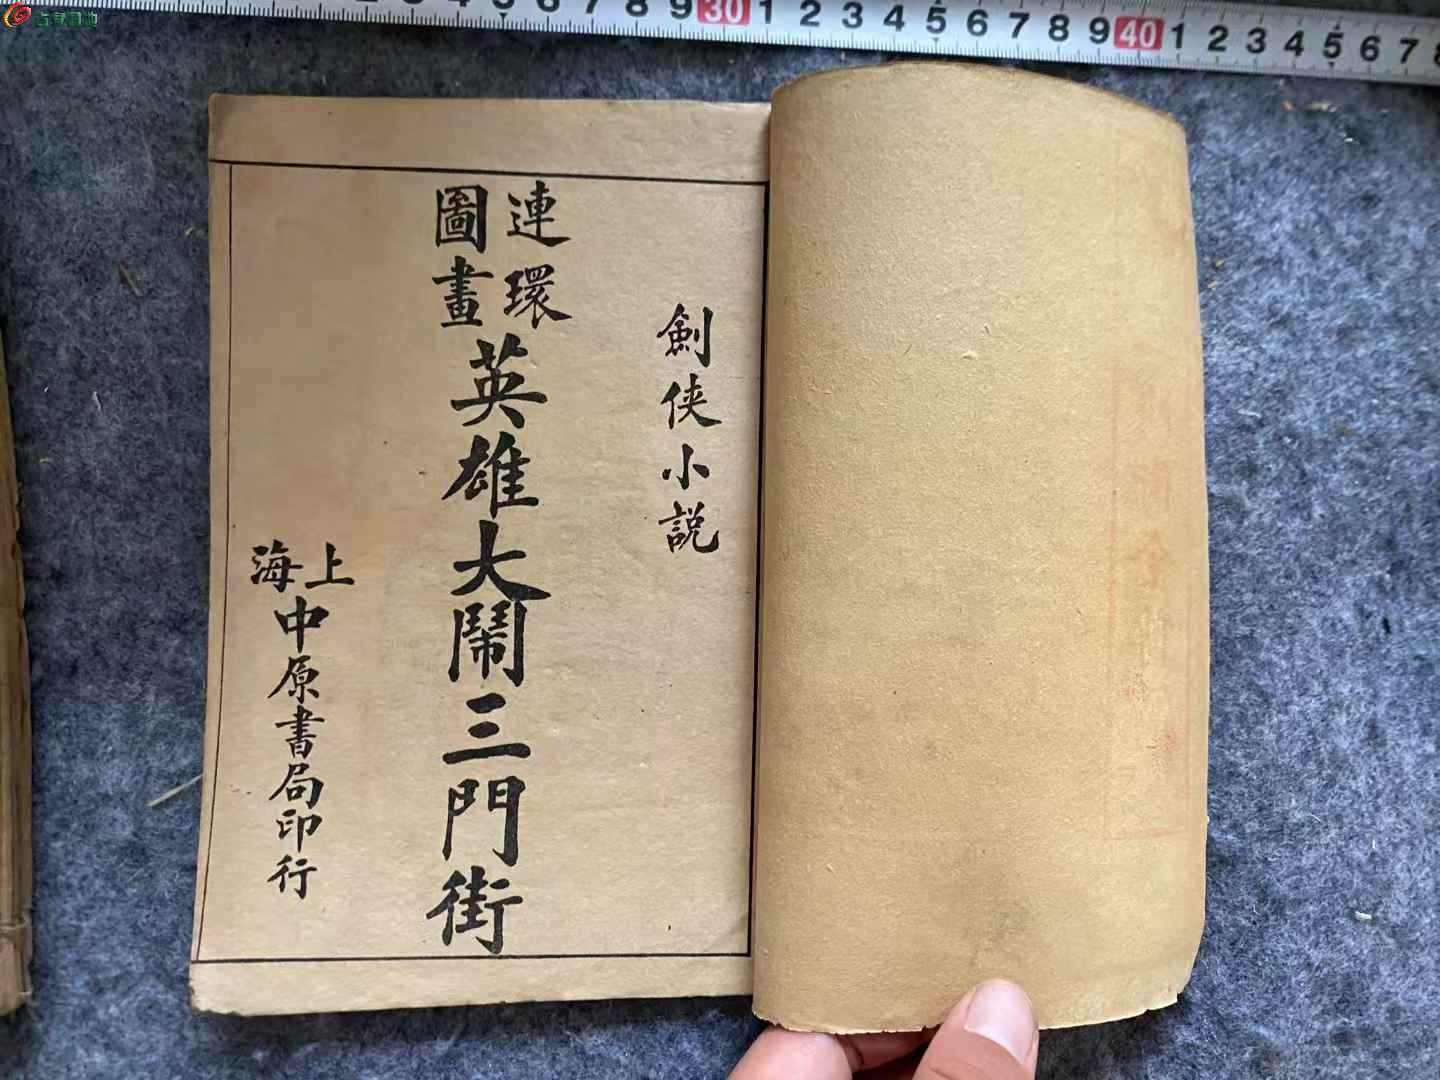 劍俠小説
連環
圖畫
英雄大鬧三門街
上海
中原書局印行
7 8 9 30 1 2 3 4 5 6 7 8 9 40 1 2 3 4 5 6 7 8